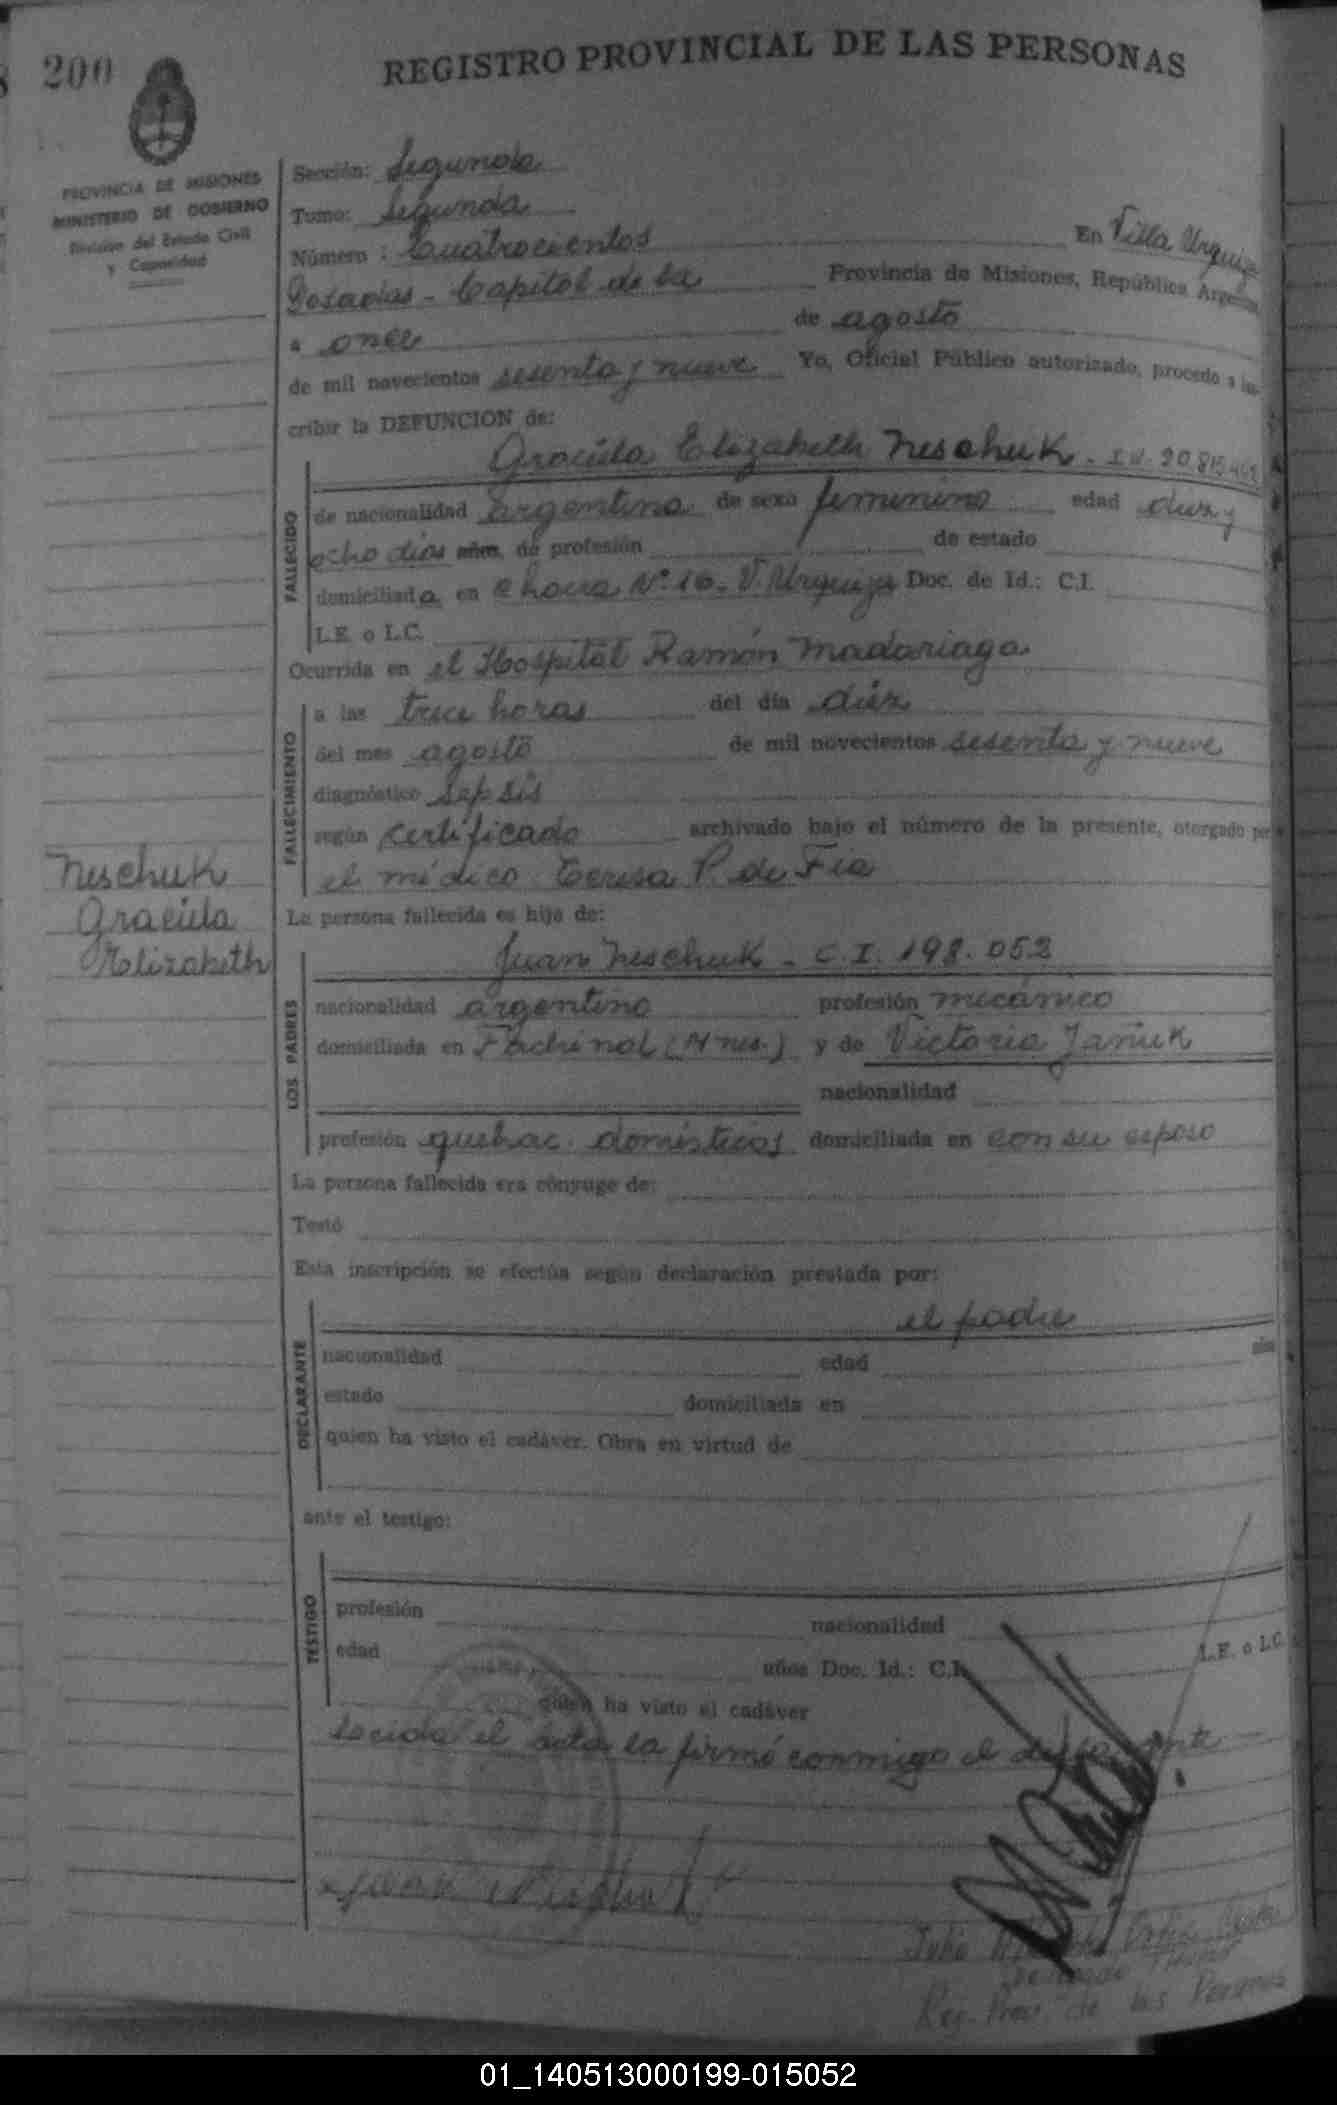 200
REGISTRO PROVINCIAL DE LAS PERSONAS
PROVINCIA DE MISIONES
MINISTERIO DE GOBIERNO
División del Estado Civil
y Capacidad
Sección: Segunda
Tomo: Segunda
Número: Cuatrocientos En Villa Urquiza
Posadas - Capital de la Provincia de Misiones, República Argentina
a once de agosto
de mil novecientos sesenta y nueve Yo, Oficial Público autorizado, procedo a ins-
cribir la DEFUNCION de:
Graciela Elizabeth Neschuk - 20.815.462
FALLECIDO
de nacionalidad argentina de sexo femenino edad diez y
ocho días años, de profesión de estado
domiciliada en chacra Nº 16. V. Urquiza Doc. de Id.: C.I.
L.E. o L.C.
Ocurrida en el Hospital Ramón Madariaga
FALLECIMIENTO
a las trece horas del día diez
del mes agosto de mil novecientos sesenta y nueve
diagnóstico sepsis
según certificado archivado bajo el número de la presente, otorgado por
el médico Teresa P. de Fia
Neschuk
Graciela
Elizabeth
La persona fallecida es hija de:
Juan Neschuk - C.I. 198.052
LOS PADRES
nacionalidad argentino profesión mecánico
domiciliada en Fachinal (Mnes.) y de Victoria Janiuk
nacionalidad
profesión quehac. domésticos domiciliada en con su esposo
La persona fallecida era cónyuge de:
Testó
Esta inscripción se efectúa según declaración prestada por:
el padre
DECLARANTE
nacionalidad edad años
estado domiciliada en
quien ha visto el cadáver. Obra en virtud de
ante el testigo:
TESTIGO
profesión nacionalidad
edad años Doc. Id.: C.I. L.E. o L.C.
quien ha visto el cadáver
Leída el acta la firmó conmigo el declarante
Juan Neschuk
Julio
Delegado Titular
Reg. Prov. de las Personas
01_140513000199-015052